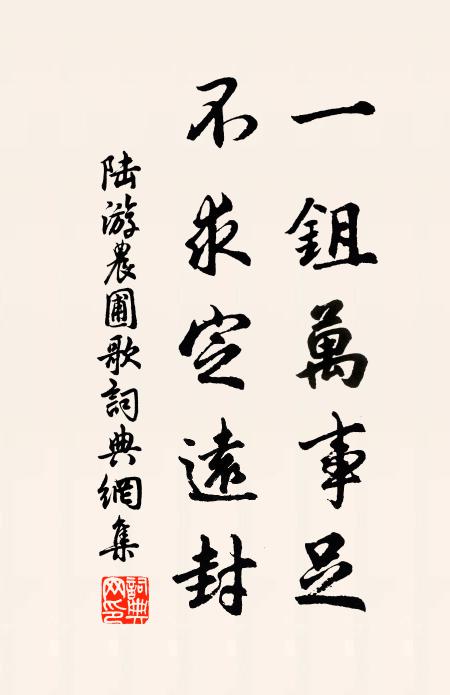 一鉏萬事足
不求定遠封
陸游農圃歌詞典網集
詞典網印